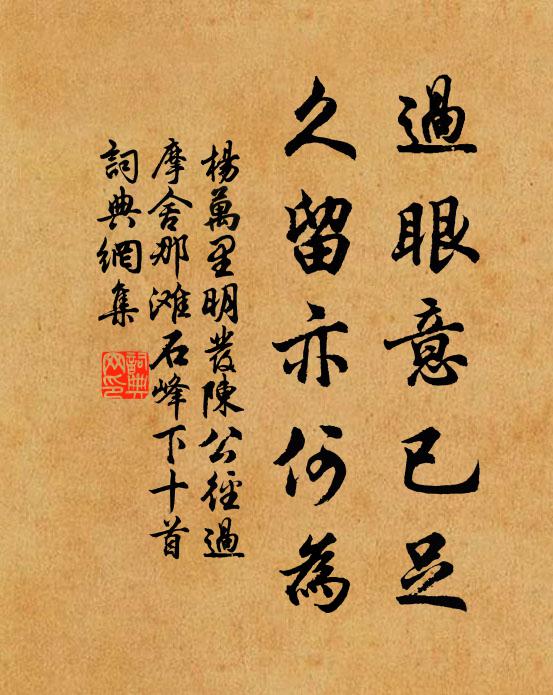 過眼意已足
久留亦何為
楊萬里明發陳公徑過
摩舍那滩石峰下十首
詞典網集
詞典网印